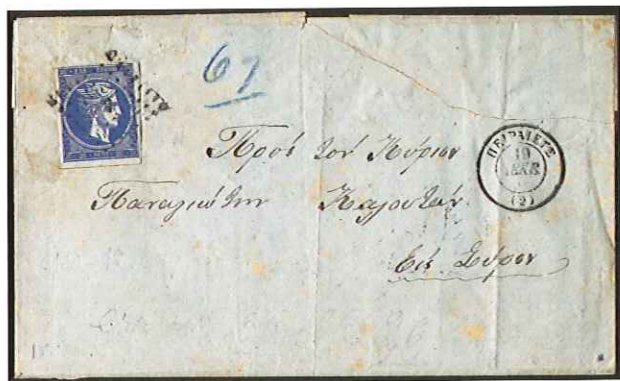 67
Πρὸς τὸν Κύριον
Παναγιώτην Καλουτᾶν
Εἰς Σύρον
ΠΕΙΡΑΙΕΥΣ
19
ΔΕΚ
(2)